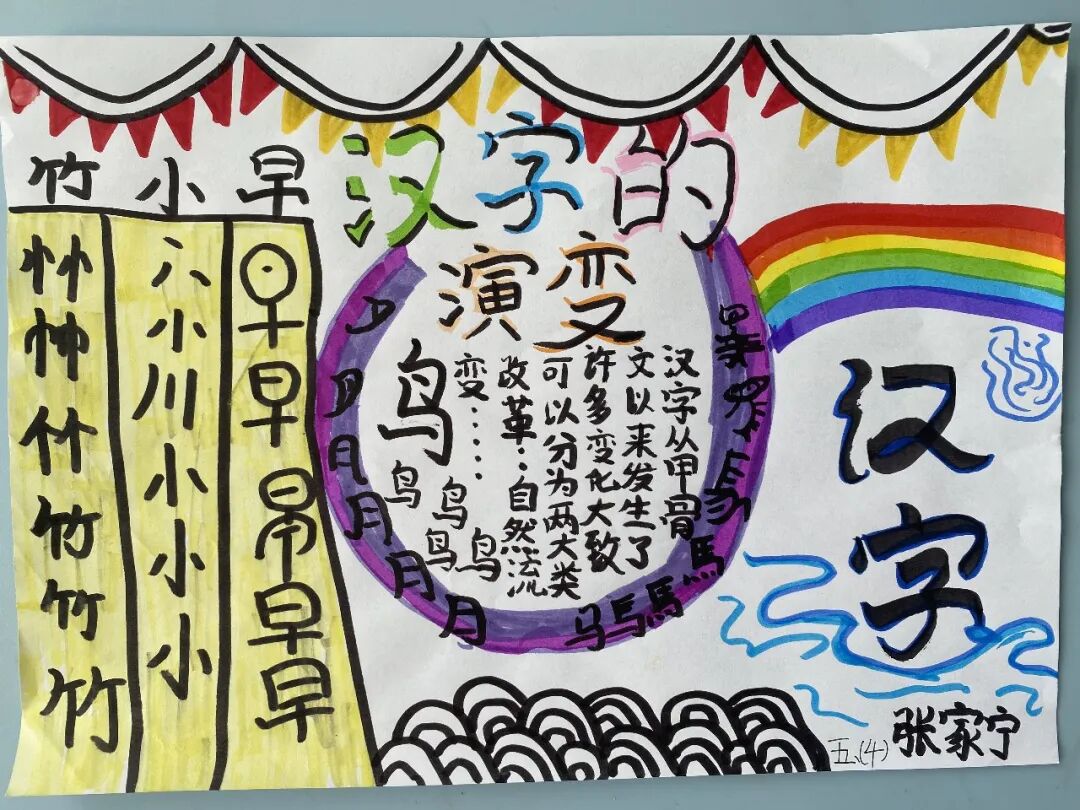 汉字的
演变
竹 小 早
竹竹竹竹
小小小小
早早早早
月月月月
鸟
鸟
鸟
鸟
鸟
汉字从甲骨
文以来发生了
许多变化大致
可以分为两大类
改革：自然流
变……
馬馬马
汉字
五、(4) 张家宁